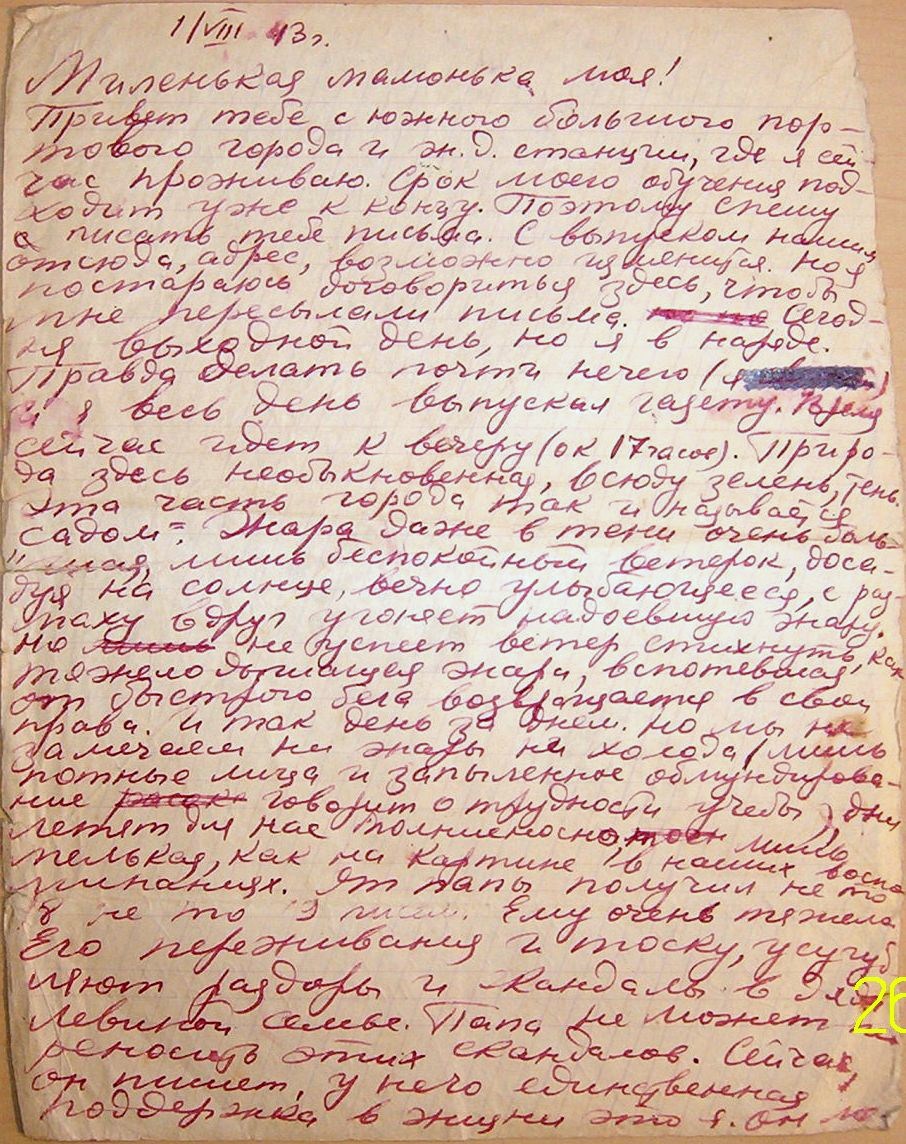 1/VIII 43 г.
Миленькая мамонька моя!
Привет тебе с южного большого пор-
тового города и ж.д. станции, где я сей-
час проживаю. Срок моего обучения под-
ходит уже к концу. Поэтому спешу
писать тебе письма. С выпуском нашим
отсюда, адрес, возможно изменится. Но я
постараюсь договориться здесь, чтобы
мне пересылали письма. Сегод-
ня выходной день, но я в наряде.
Правда делать почти нечего (я
и я весь день выпускал газету. Время
сейчас идет к вечеру (ок 17 часов). Приро-
да здесь необыкновенная, всюду зелень, тень.
Эта часть города так и называется
садом". Жара даже в тени очень боль-
шая, лишь беспокойный ветерок, доса-
дуя на солнце, вечно улыбающееся, с раз-
маху вдруг угоняет надоевшую жару.
но не успеет ветер стихнуть, как
тяжело дышащая жара, вспотевшая
от быстрого бега возвращается в свои
права. И так день за днем. Но мы не
замечаем ни жары ни холода (лишь
потные лица и запыленное обмундирова-
ние говорит о трудности учебы), дни
летят для нас молниеносно, лишь
мелькая, как на картине в наших воспо-
минаниях. От папы получил не то
8 не то 9 писем. Ему очень тяжело
Его переживания и тоску, усугуб
ляют раздоры и скандалы в Дяди
Левиной семье. Папа не может
реносить этих скандалов. Сейчас,
он пишет, у него единственная
поддержка в жизни это я. Он
26